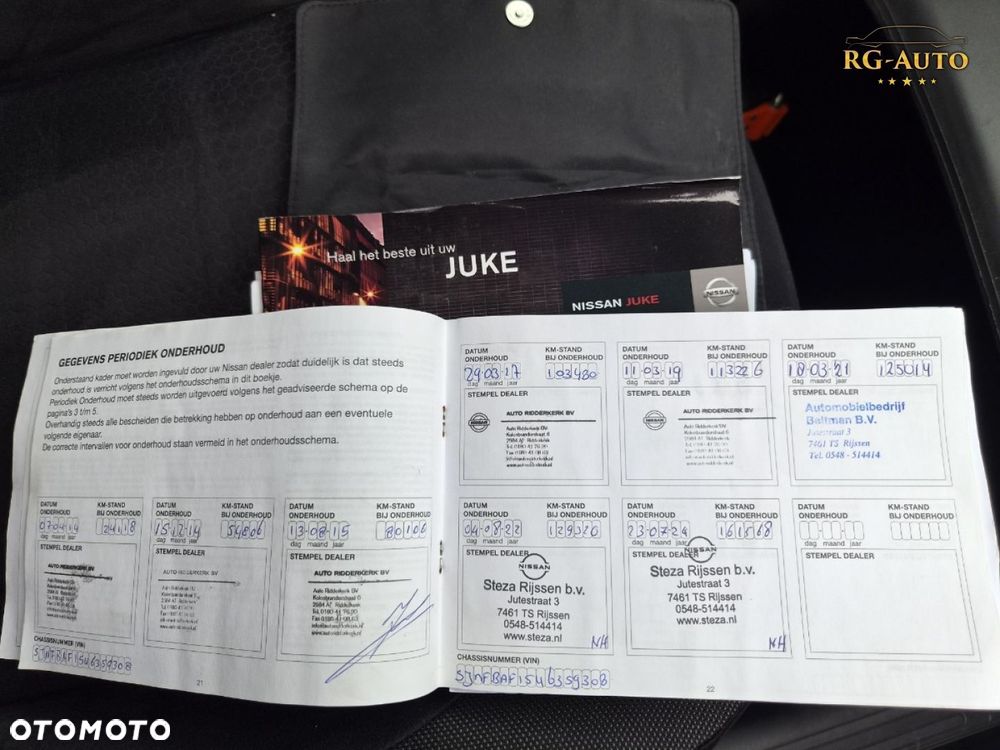 RG-AUTO
Haal het beste uit uw
JUKE
NISSAN JUKE
NISSAN
GEGEVENS PERIODIEK ONDERHOUD
Onderstaand kader moet worden ingevuld door uw Nissan dealer zodat duidelijk is dat steeds
onderhoud is verricht volgens het onderhoudsschema in dit boekje.
Periodiek Onderhoud moet steeds worden uitgevoerd volgens het geadviseerde schema op de
pagina's 3 t/m 5.
Overhandig steeds alle bescheiden die betrekking hebben op onderhoud aan een eventuele
volgende eigenaar.
De correcte intervallen voor onderhoud staan vermeld in het onderhoudsschema.
DATUM ONDERHOUD
KM-STAND BIJ ONDERHOUD
07-04-14
24118
dag maand jaar
STEMPEL DEALER
DATUM ONDERHOUD
KM-STAND BIJ ONDERHOUD
15-12-14
54806
dag maand jaar
STEMPEL DEALER
AUTO RIDDERKERK BV
DATUM ONDERHOUD
KM-STAND BIJ ONDERHOUD
13-08-15
80106
dag maand jaar
STEMPEL DEALER
AUTO RIDDERKERK BV
CHASSISNUMMER (VIN)
21
DATUM ONDERHOUD
KM-STAND BIJ ONDERHOUD
29-03-17
103480
dag maand jaar
STEMPEL DEALER
AUTO RIDDERKERK BV
DATUM ONDERHOUD
KM-STAND BIJ ONDERHOUD
11-03-19
113226
dag maand jaar
STEMPEL DEALER
AUTO RIDDERKERK BV
DATUM ONDERHOUD
KM-STAND BIJ ONDERHOUD
18-03-21
125014
dag maand jaar
STEMPEL DEALER
Automobielbedrijf
Beltman B.V.
Jutestraat 3
7461 TS Rijssen
Tel. 0548 - 514414
DATUM ONDERHOUD
KM-STAND BIJ ONDERHOUD
04-08-22
129320
dag maand jaar
STEMPEL DEALER
NISSAN
Steza Rijssen b.v.
Jutestraat 3
7461 TS Rijssen
0548-514414
www.steza.nl
NH
DATUM ONDERHOUD
KM-STAND BIJ ONDERHOUD
23-07-24
161568
dag maand jaar
STEMPEL DEALER
NISSAN
Steza Rijssen b.v.
Jutestraat 3
7461 TS Rijssen
0548-514414
www.steza.nl
NH
DATUM ONDERHOUD
KM-STAND BIJ ONDERHOUD
dag maand jaar
STEMPEL DEALER
CHASSISNUMMER (VIN)
SJNFBAF15U6359308
22
OTOMOTO